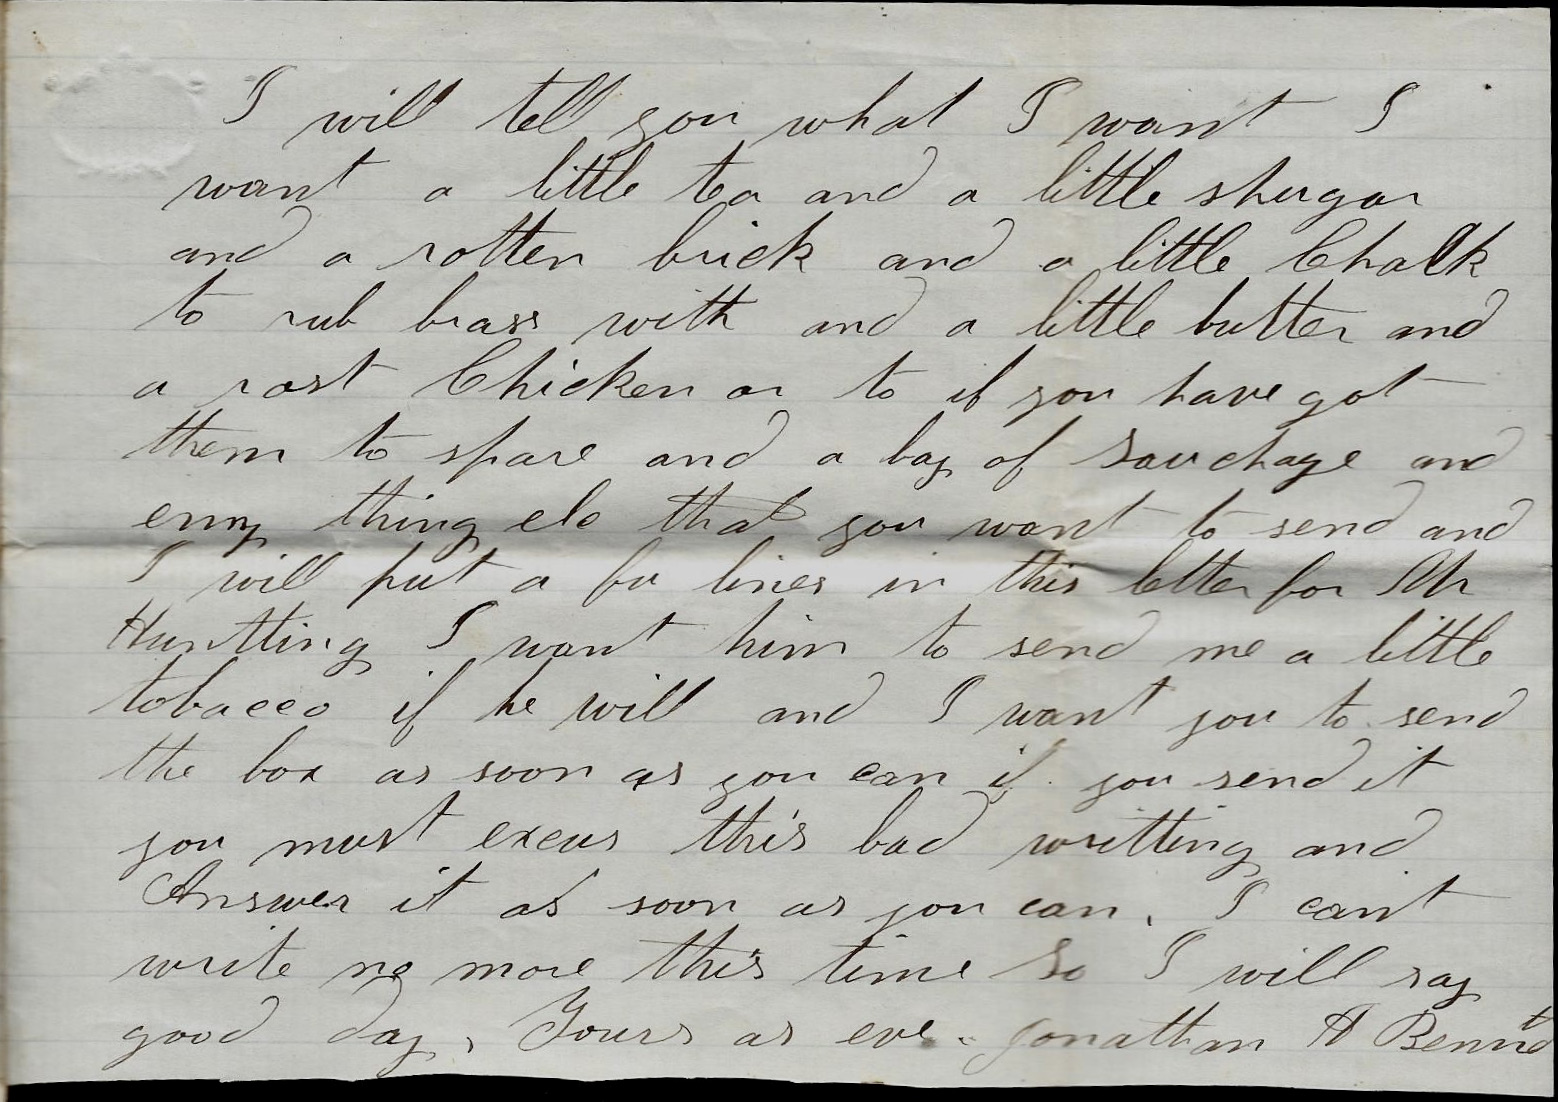 I will tell you what I want I
want a little tea and a little shugar
and a rotten brick and a little Chalk
to rub brass with and a little butter and
a rost Chicken or to if you have got
them to spare and a bag of sauchage and
enny thing els that you want to send and
I will put a fu lines in this letter for Mr
Huntting I want him to send me a little
tobacco if he will and I want you to send
the box as soon as you can if you send it
you must excus this bad writting and
Answer it as soon as you can. I can't
write no more this time so I will say
good day, Yours as eve. Jonathan H